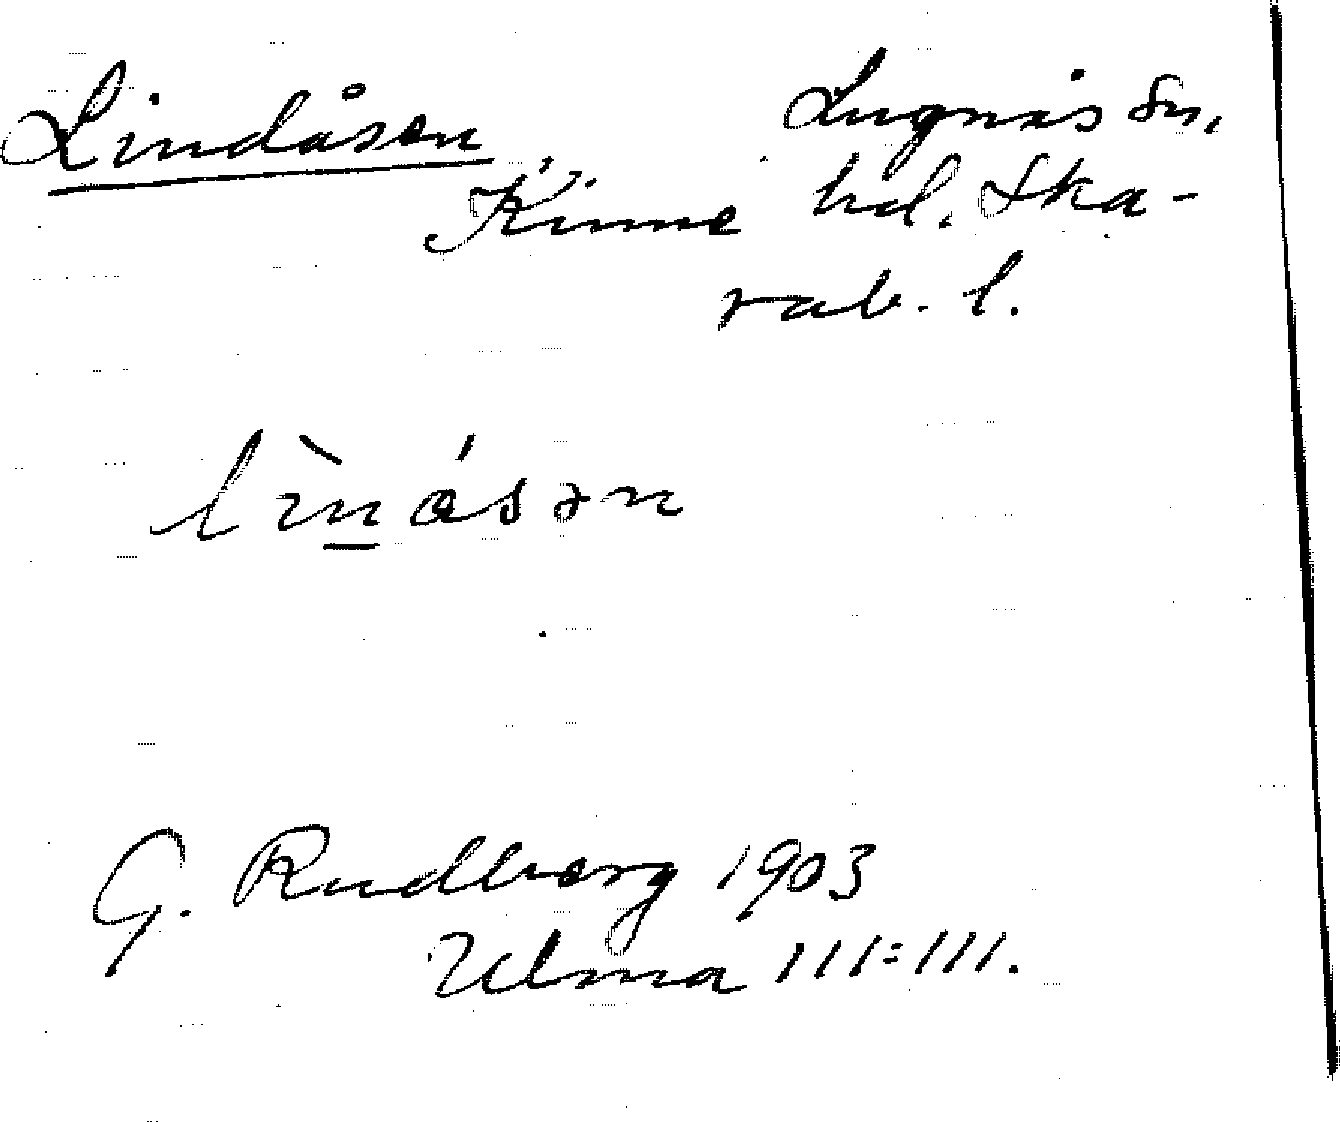 Lindåsen Lugnås sn,
Kinne hd. Ska-
rab. l.
lìnásən
G. Rudberg 1903
Ulma 111:111.